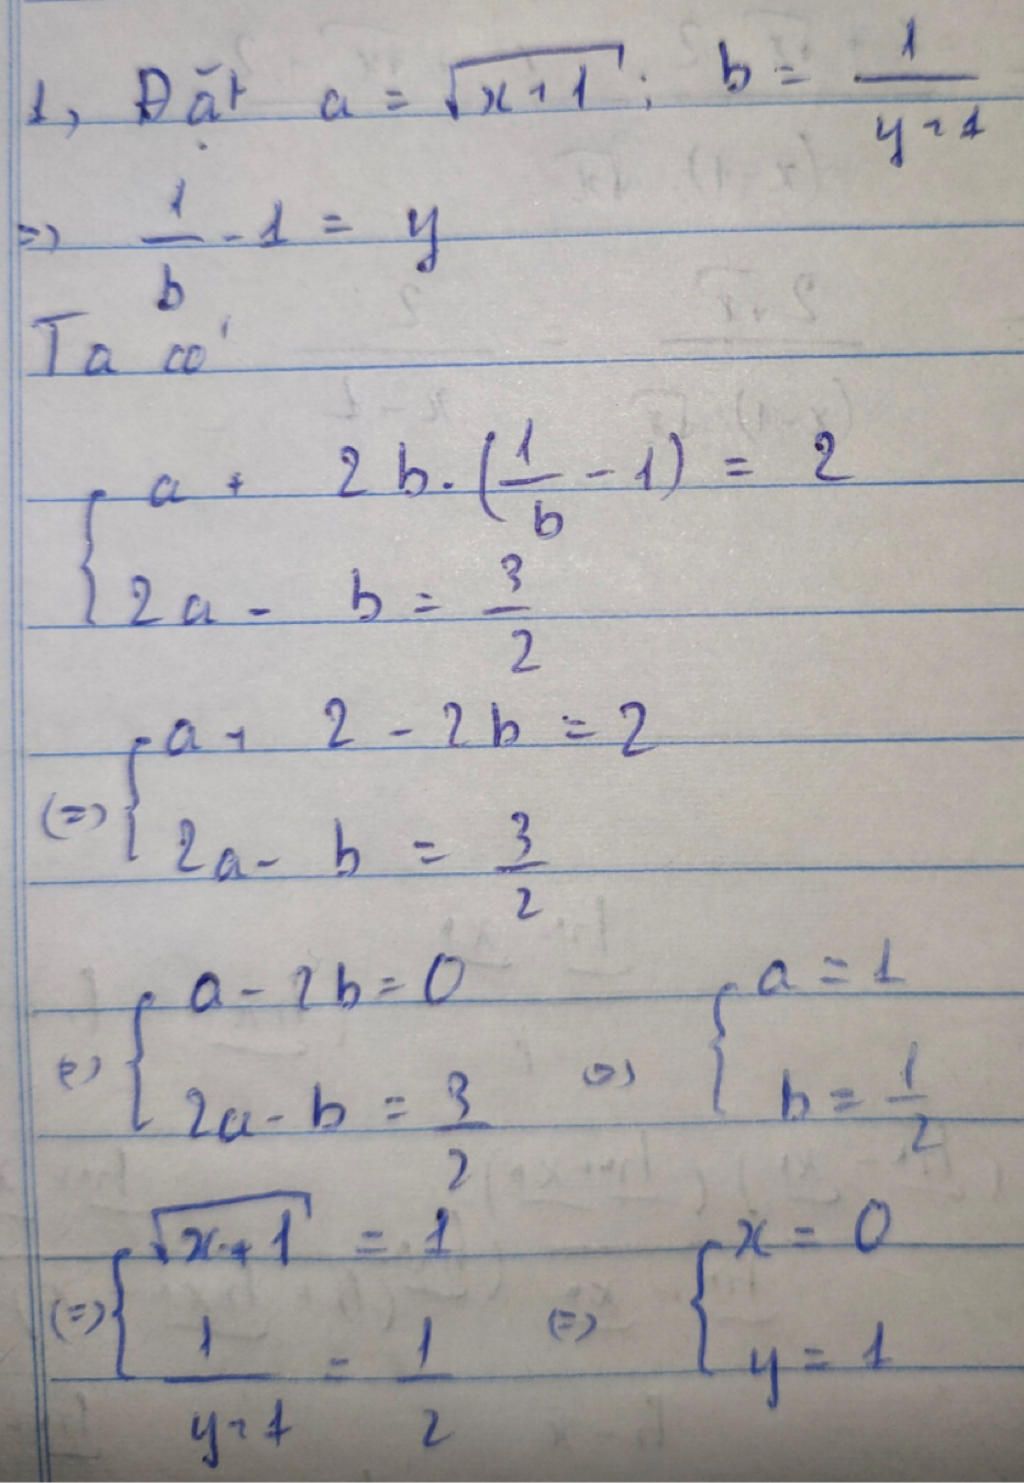 1, Đặt a = √(x+1) ; b = 1/(y+1)
=> 1/b - 1 = y
Ta có
{ a + 2b.(1/b - 1) = 2
{ 2a - b = 3/2
(=) { a + 2 - 2b = 2
{ 2a - b = 3/2
(=) { a - 2b = 0 (=) { a = 1
{ 2a - b = 3/2 { b = 1/2
(=) { √(x+1) = 1 (=) { x = 0
{ 1/(y+1) = 1/2 { y = 1